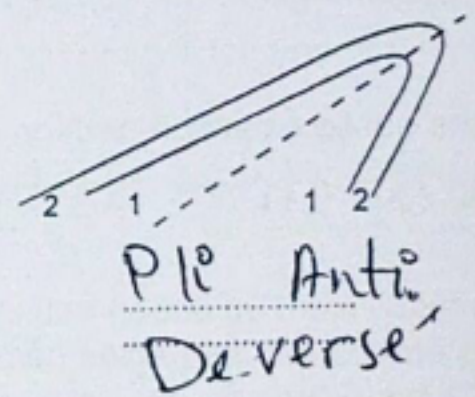 2 1 1 2
Pli Anti.
De.versé